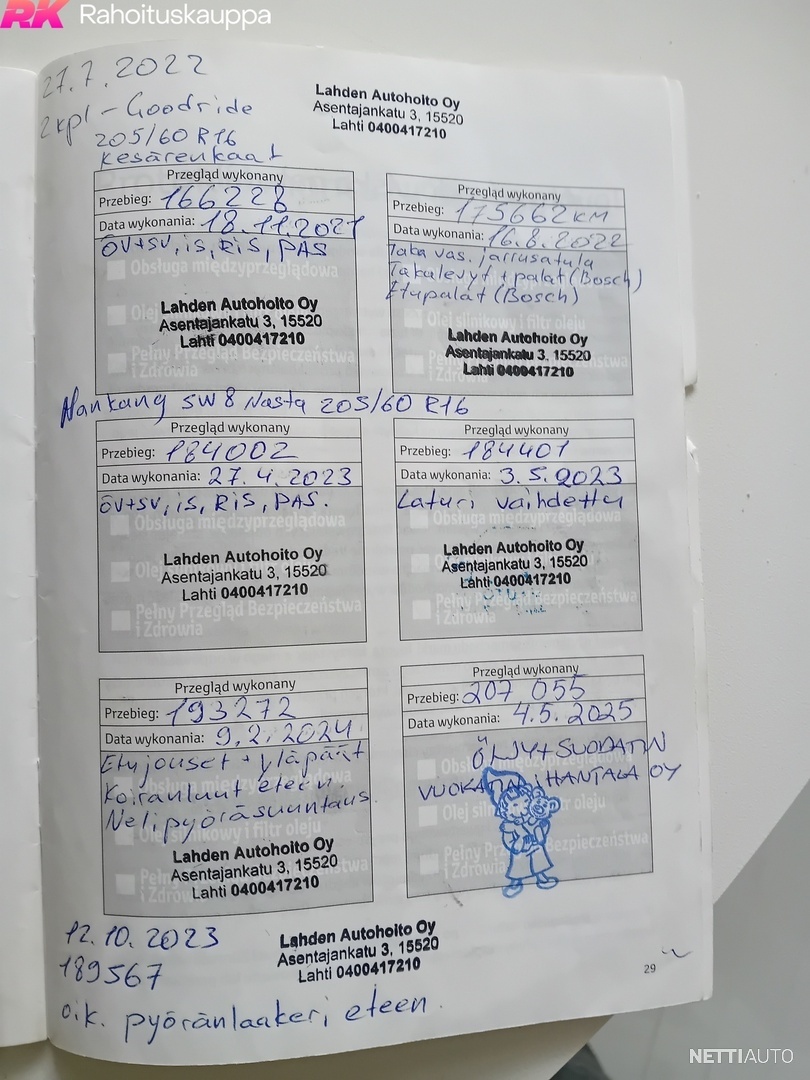 RK Rahoituskauppa
27.7.2022
2kpl - Goodride
205/60 R16
Kesärenkaat
Lahden Autohoito Oy
Asentajankatu 3, 15520
Lahti 0400417210
Przegląd wykonany
Przebieg: 166228
Data wykonania: 18.11.2021
ÖV+SV, iS, RiS, PAS
Obsługa międzyprzeglądowa
Olej
Lahden Autohoito Oy
Asentajankatu 3, 15520
Lahti 0400417210
Pełny Przegląd Bezpieczeństwa
i Zdrowia
Przegląd wykonany
Przebieg: 175662 KM
Data wykonania: 16.8.2022
Taka vas. jarrusatula
Takalevyt + palat (Bosch)
Etupalat (Bosch)
Olej silnikowy i filtr oleju
Lahden Autohoito Oy
Asentajankatu 3, 15520
Lahti 0400417210
Nankang SW8 Nasta 205/60 R16
Przegląd wykonany
Przebieg: 184002
Data wykonania: 27.4.2023
ÖV+SV, iS, RiS, PAS.
Obsługa międzyprzeglądowa
Olej
Lahden Autohoito Oy
Asentajankatu 3, 15520
Lahti 0400417210
Pełny Przegląd Bezpieczeństwa
i Zdrowia
Przegląd wykonany
Przebieg: 184401
Data wykonania: 3.5.2023
Laturi vaihdettu
Obsługa międzyprzeglądowa
Lahden Autohoito Oy
Asentajankatu 3, 15520
Lahti 0400417210
Pełny Przegląd Bezpieczeństwa
i Zdrowia
Przegląd wykonany
Przebieg: 193272
Data wykonania: 9.2.2024
Etujouset + yläpäät
Koiranluut eteen.
Nelipyöräsuuntaus.
silnikowy i filtr oleju
Lahden Autohoito Oy
Asentajankatu 3, 15520
Lahti 0400417210
Przegląd wykonany
Przebieg: 207 055
Data wykonania: 4.5.2025
ÖLJY+SUODATIN
VUOKATIN IHANTALA OY
Olej silnikowy i filtr oleju
Pełny Przegląd Bezpieczeństwa
i Zdrowia
12.10.2023
189567
oik. pyöränlaakeri eteen.
Lahden Autohoito Oy
Asentajankatu 3, 15520
Lahti 0400417210
29
NETTIAUTO